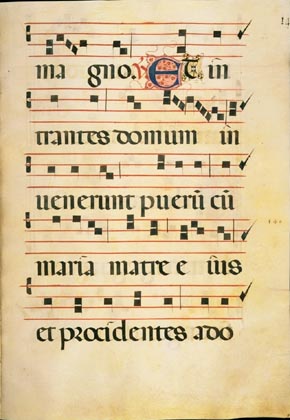 ma gno. Et in
trantes domum in
uenerunt puerū cū
maria matre e ius
et procidentes ado